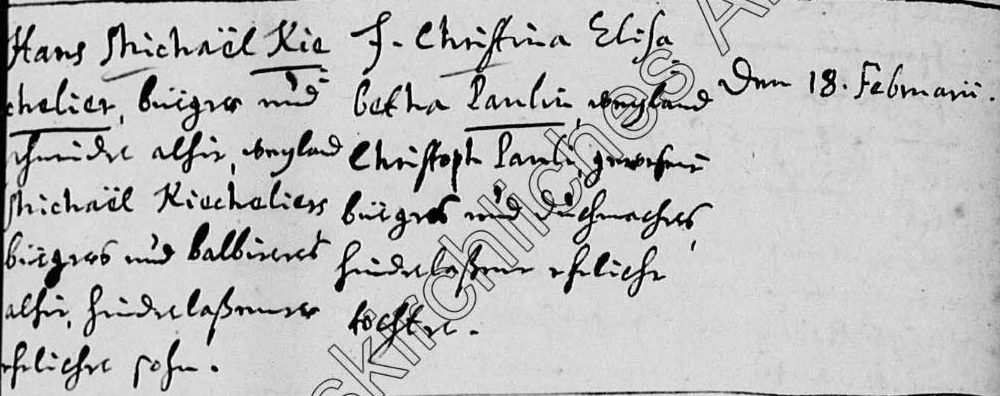 Hans Michaël Kie
chelier, bürger und
schneider alhir, weyland
Michaël Kiecheliers
bürgers und balbirers
alhir, hinderlaßener
ehlicher sohn.
J. Christina Elisa
betha Paulin, weyland
Christoph Pauli, gewesene
bürgers und Tuchmachers,
hinderlaßene ehliche
tochter.
Den 18. Februarii.
skirchliches A